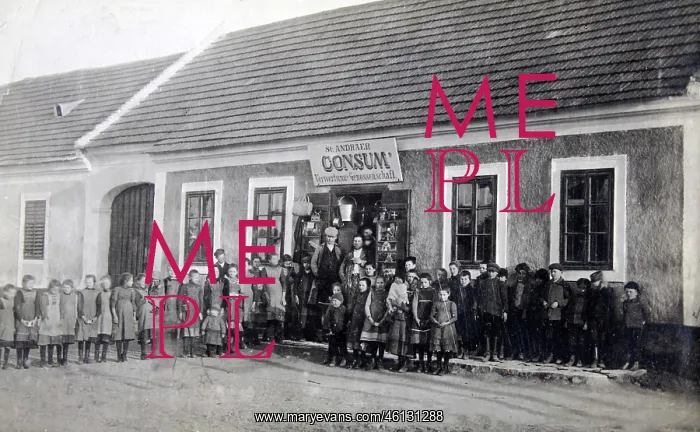 St. ANDRAER
CONSUM
Verwertungs-Genossenschaft.
ME
PL
ME
PL
www.maryevans.com/46131288